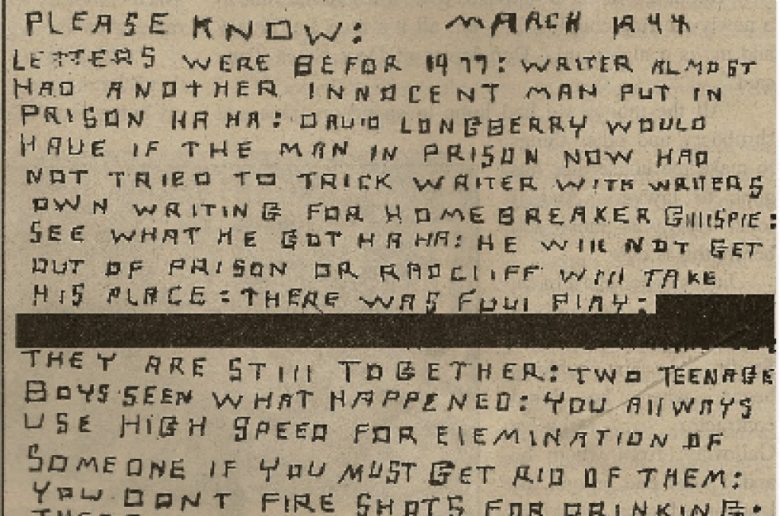 PLEASE KNOW: MARCH 1944
LETTERS WERE BEFOR 1977: WRITER ALMOST
HAD ANOTHER INNOCENT MAN PUT IN
PRISON HA HA: DAVID LONGBERRY WOULD
HAVE IF THE MAN IN PRISON NOW HAD
NOT TRIED TO TRICK WRITER WITH WRITERS
OWN WRITING FOR HOMEBREAKER GILLISPIE:
SEE WHAT HE GOT HAHA: HE WILL NOT GET
OUT OF PRISON OR RADCLIFF WILL TAKE
HIS PLACE: THERE WAS FOUL PLAY:
THEY ARE STILL TOGETHER: TWO TEENAGE
BOYS SEEN WHAT HAPPENED: YOU ALLWAYS
USE HIGH SPEED FOR ELEMINATION OF
SOMEONE IF YOU MUST GET RID OF THEM:
YOU DONT FIRE SHOTS FOR DRINKING: